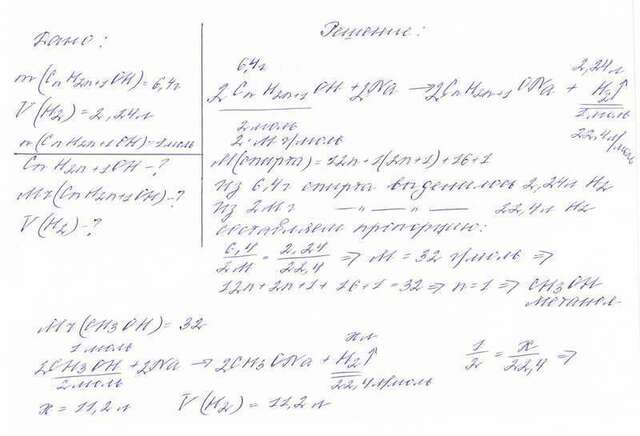 Дано:
m(CnH2n+1OH)=6,4г
V(H2)=2,24л
n(CnH2n+1OH)=1моль
CnH2n+1OH-?
Mr(CnH2n+1OH)-?
V(H2)-?
Решение:
6,4г 2,24л
2CnH2n+1OH + 2Na → 2CnH2n+1ONa + H2↑
2моль 1моль
2·M г/моль 22,4л/моль
M(спирта)=12n+1(2n+1)+16+1
Из 6,4г спирта выделилось 2,24л H2
Из 2Mг —"—"— 22,4л H2
составляем пропорцию:
6,4/2M = 2,24/22,4 => M=32 г/моль =>
12n+2n+1+16+1=32 => n=1 => CH3OH
метанол
Mr(CH3OH)=32
1моль xл
2CH3OH + 2Na → 2CH3ONa + H2↑ 1/2 = x/22,4 =>
2моль 22,4л/моль
x=11,2л V(H2)=11,2л